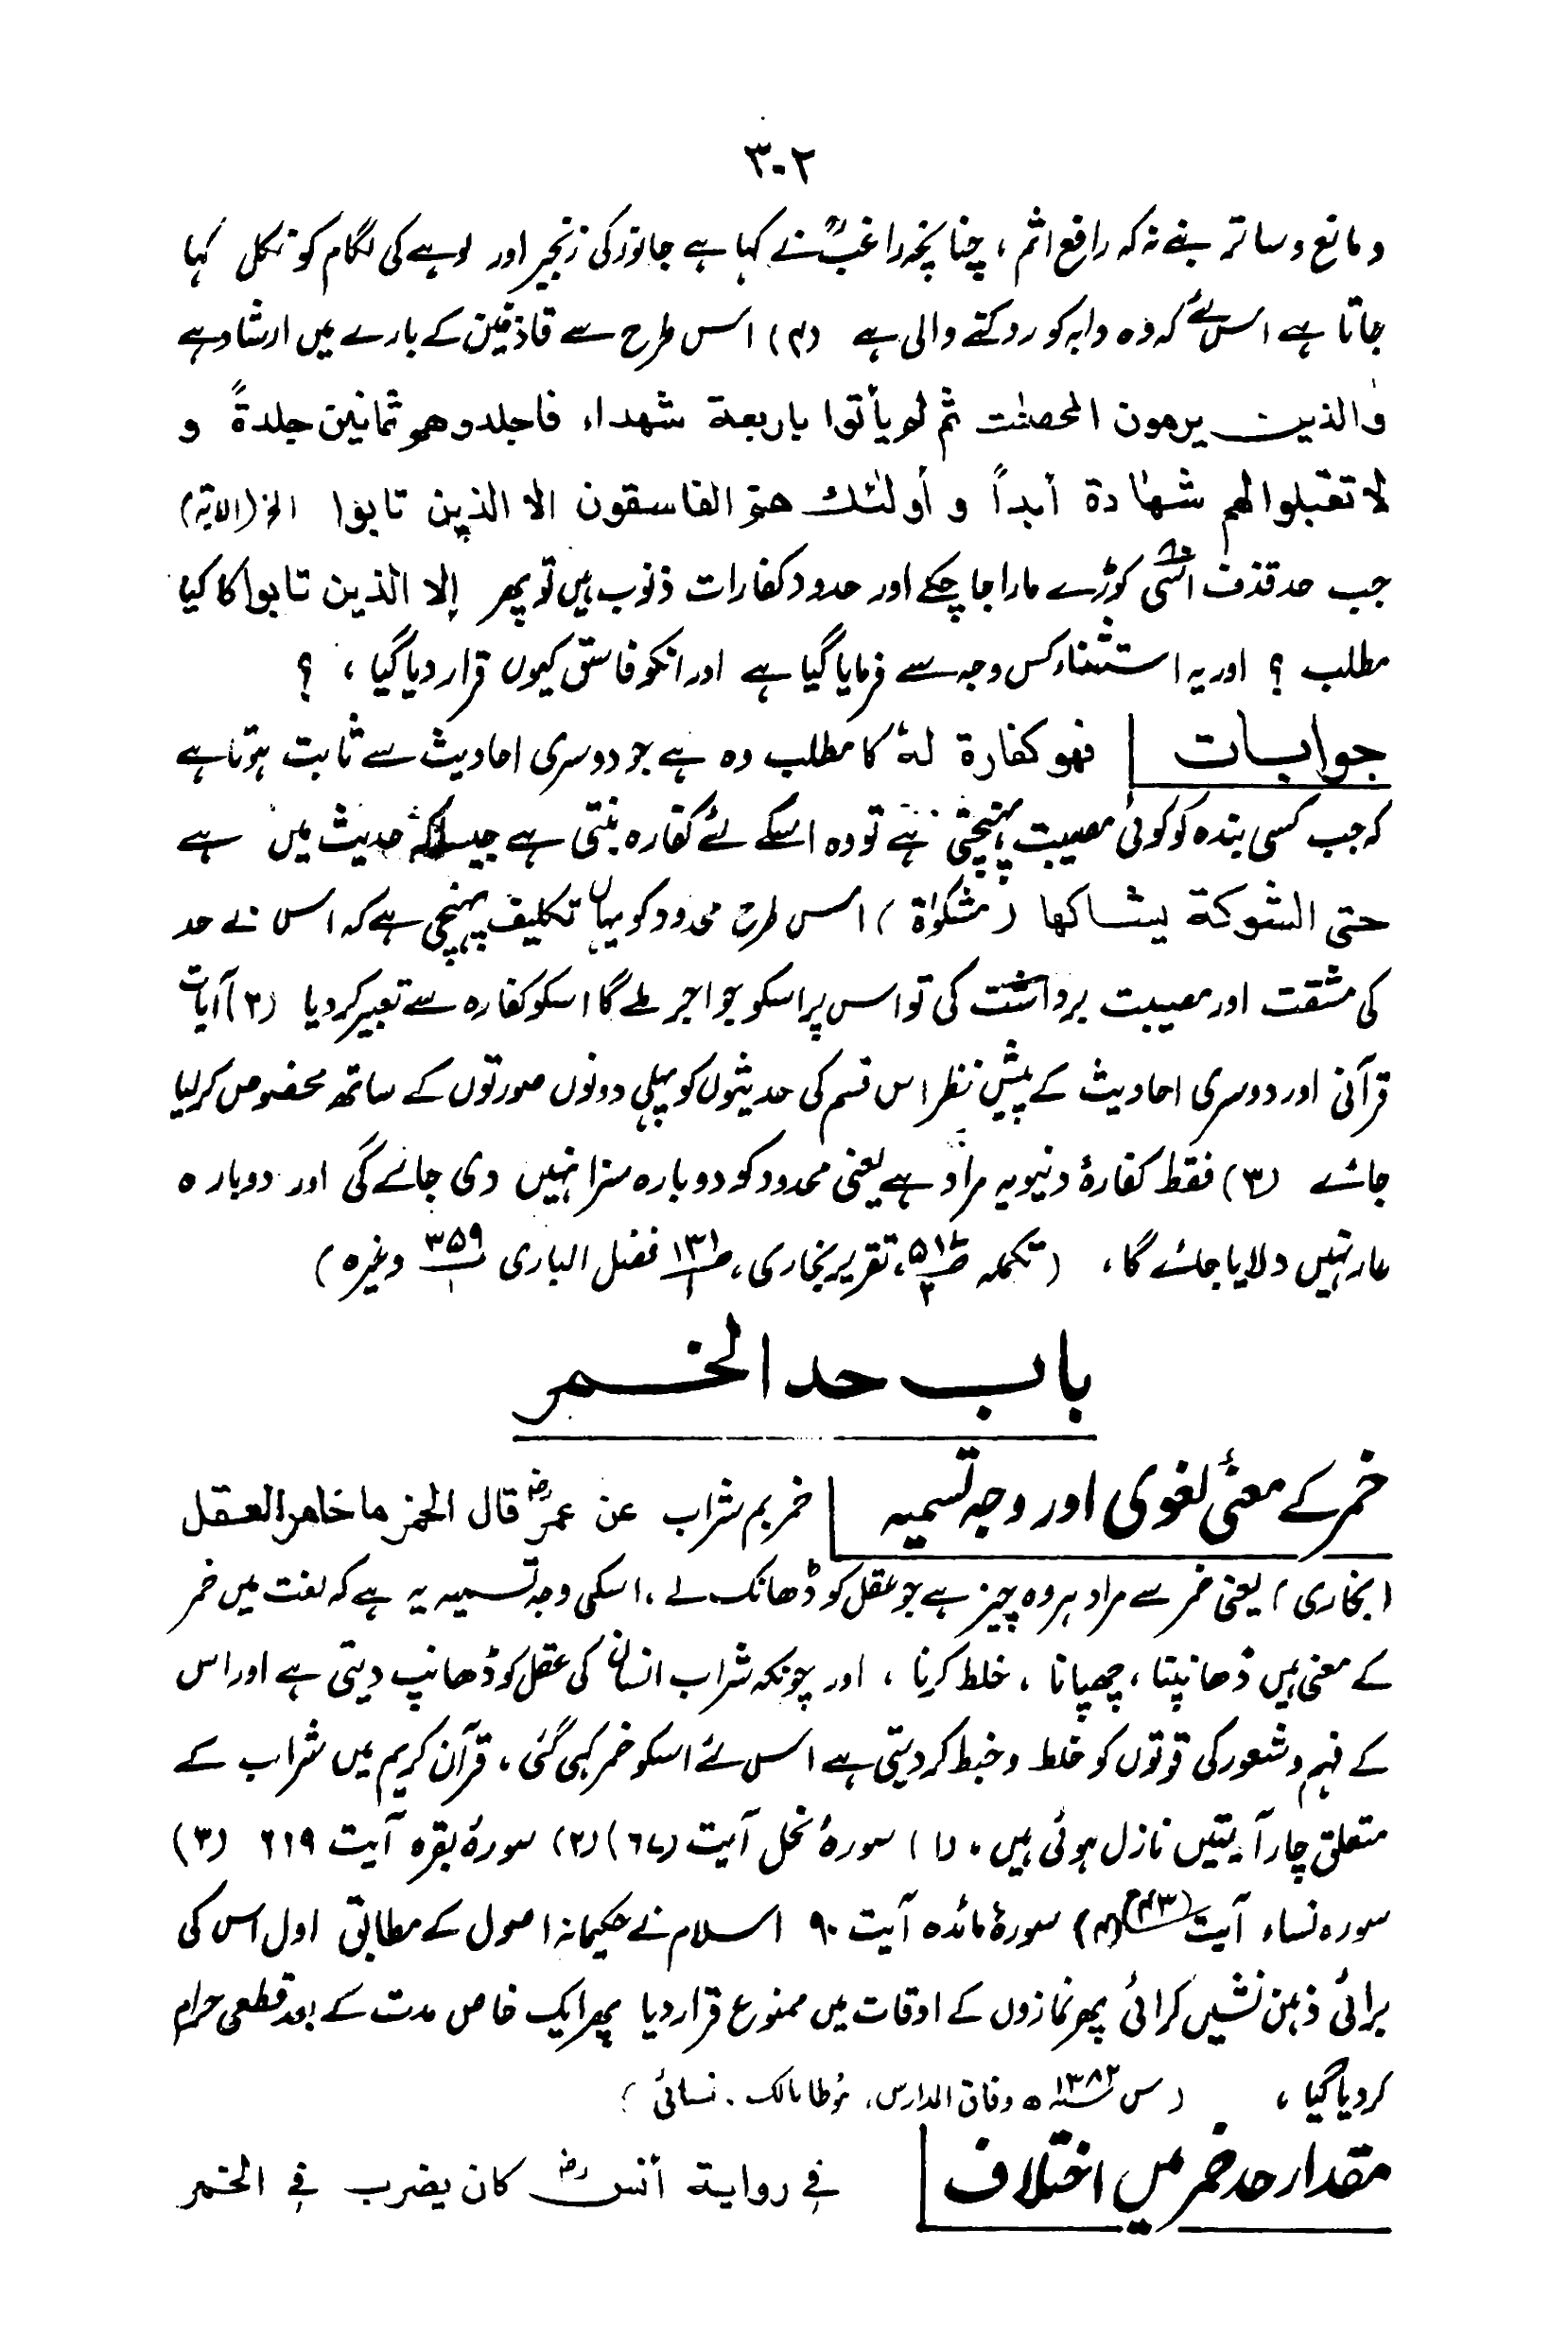 ۳۰۲
و مانع و ساتر بنے نہ کہ رافع اثم ، چنانچہ راغبؒ نے کہا ہے جانور کی زنجیر اور لوہے کی لگام کو نکل کہا
جاتا ہے اس لئے کہ وہ دابہ کو روکنے والی ہے (۴) اس طرح سے قاذفین کے بارے میں ارشاد ہے
والذین یرمون المحصنٰت ثم لم یأتوا باربعة شهداء فاجلدوهم ثمانین جلدةً و
لا تقبلوا لهم شهادة أبداً و أولٰئك هم الفاسقون الا الذین تابوا الخ (الآیة)
جب حد قذف اسّی کوڑے مارا جا چکے اور حدود کفارات ذنوب ہیں تو پھر إلا الذین تابوا کا کیا
مطلب ؟ اور یہ استثناء کس وجہ سے فرمایا گیا ہے اور انکو فاسق کیوں قرار دیا گیا ، ؟
جوابات | فهو كفارة لهٗ کا مطلب وہ ہے جو دوسری احادیث سے ثابت ہوتا ہے
کہ جب کسی بندہ کو کوئی مصیبت پہنچتی ہے تو وہ اسکے لئے کفارہ بنتی ہے جیساکہ حدیث میں ہے
حتی الشوكة یشاكها (مشکوٰۃ) اس طرح محدود کو یہاں تکلیف پہنچی ہے کہ اس نے حد
کی مشقت اور مصیبت برداشت کی تو اس پر اسکو جو اجر ملے گا اسکو کفارہ سے تعبیر کر دیا (۲) آیات
قرآنی اور دوسری احادیث کے پیش نظر اس قسم کی حدیثوں کو پہلی دونوں صورتوں کے ساتھ مخصوص کر لیا
جائے (۳) فقط کفارۂ دنیویہ مراد ہے یعنی محدود کو دوبارہ سزا نہیں دی جائے گی اور دوبارہ
عار نہیں دلایا جائے گا ، (تکملہ ص۵۱۶/۲، تقریر بخاری، ص۱۳۱/۱ فضل الباری ص۳۵۹/۱ وغیرہ)
باب حد الخمر
خمر کے معنیٔ لغوی اور وجہ تسمیہ | خمر بم شراب عن عمرؓ قال الخمر ما خامر العقل
(بخاری) یعنی خمر سے مراد ہر وہ چیز ہے جو عقل کو ڈھانک لے ، اسکی وجہ تسمیہ یہ ہے کہ لغت میں خمر
کے معنی ہیں ڈھانپنا ، چھپانا ، خلط کرنا ، اور چونکہ شراب انسان کی عقل کو ڈھانپ دیتی ہے اور اس
کے فہم و شعور کی قوتوں کو خلط و خبط کر دیتی ہے اس لئے اسکو خمر کہی گئی ، قرآن کریم میں شراب کے
متعلق چار آیتیں نازل ہوئی ہیں ، (۱) سورۂ نحل آیت (۶۷) (۲) سورۂ بقرہ آیت ۲۱۹ (۳)
سورہ نساء آیت (۴۳) (۴) سورۂ مائدہ آیت ۹۰ اسلام نے حکیمانہ اصول کے مطابق اول اس کی
برائی ذہن نشیں کرائی پھر نمازوں کے اوقات میں ممنوع قرار دیا پھر ایک خاص مدت کے بعد قطعی حرام
کر دیا گیا ، (س ۱۳۸۲ھ وفاق المدارس، مؤطا مالک، نسائی)
مقدار حد خمر میں اختلاف | في رواية أنسؓ كان یضرب في الخمر